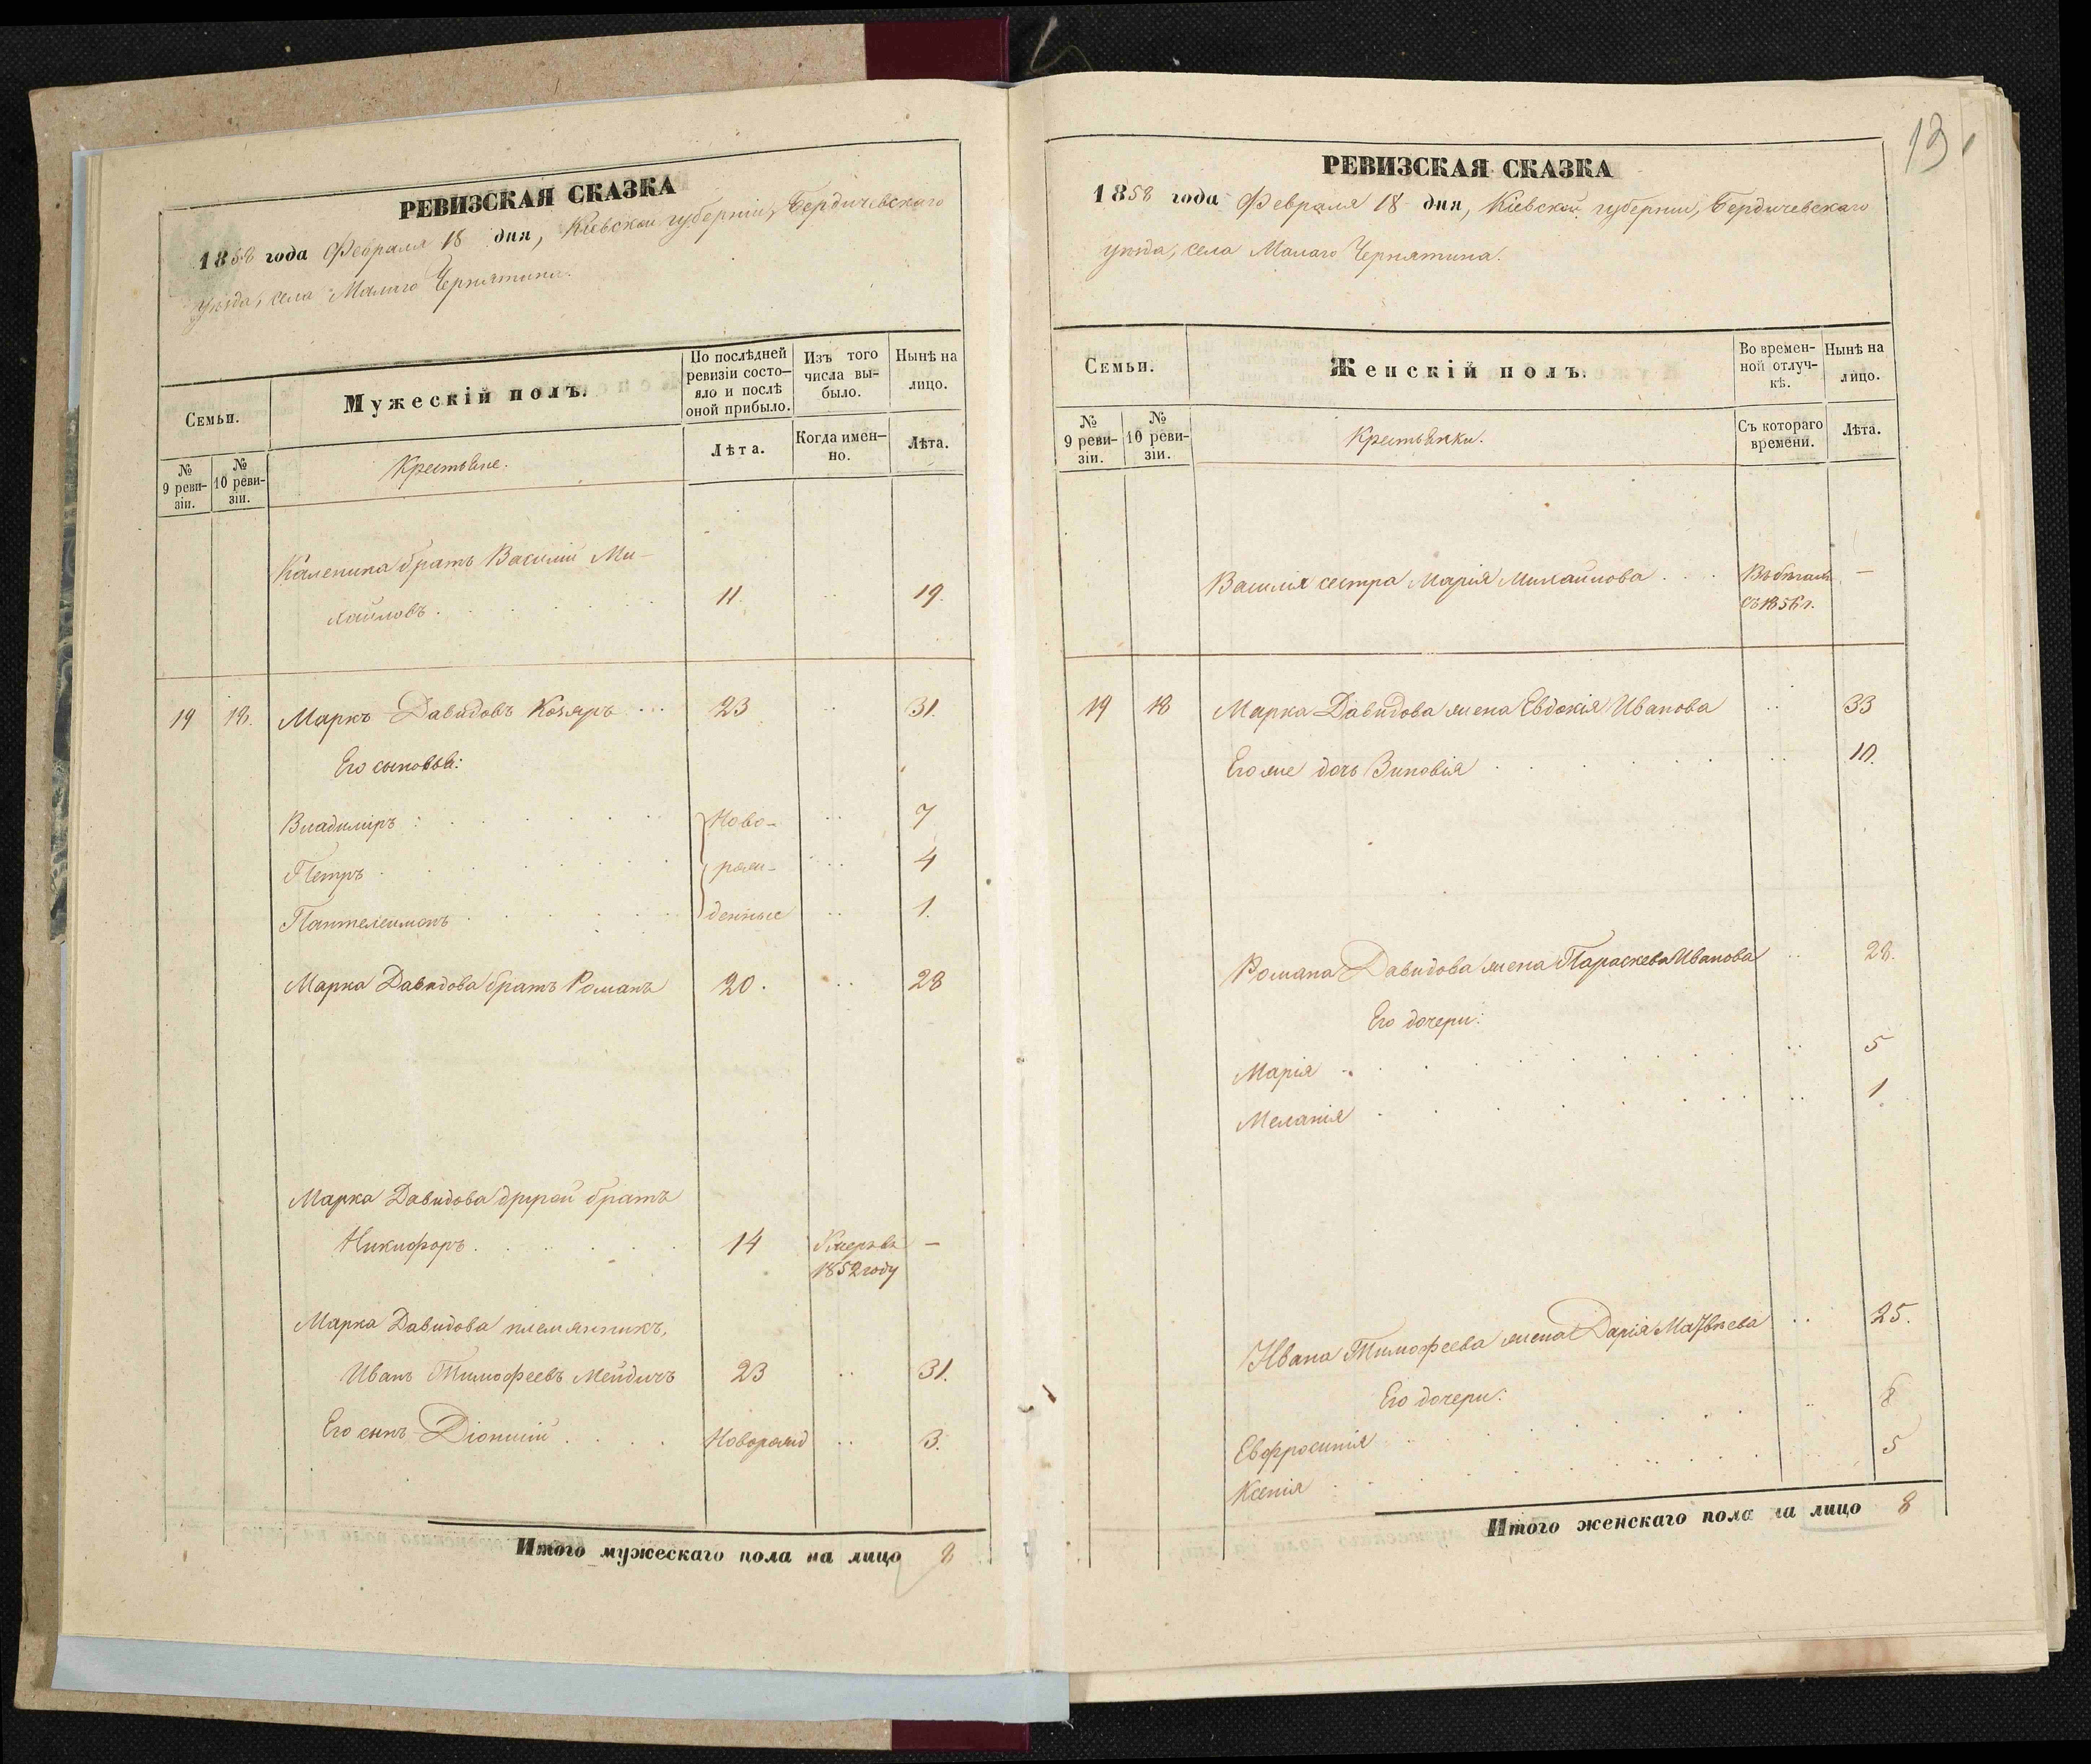 РЕВИЗСКАЯ СКАЗКА
1858 года Февраля 18 дня, Кіевской губерніи, Бердичевскаго
уѣзда, села Малаго Чернятина.
Семьи.
Мужескій полъ.
По послѣдней ревизіи состо-
яло и послѣ оной прибыло.
Изъ того числа вы-
было.
Нынѣ на лицо.
№ 9 реви-
зіи.
№ 10 реви-
зіи.
Крестьяне.
Лѣта.
Когда имен-
но.
Лѣта.
Каленика братъ Василій Ми-
хайловъ . . . 11. .. 19.
19 18. Маркъ Давидовъ Козяръ ... 23 .. 31.
Его сыновья:
Владиміръ Ново- .. 7
Петръ рож- .. 4
Пантелеимонъ денные .. 1.
Марка Давидова братъ Романъ 20. .. 28
Марка Давидова другой братъ
Никифоръ . . . 14 Умеръ въ —
1852 году
Марка Давидова племянникъ,
Иванъ Тимофеевъ Мейдичъ 23 .. 31.
Его сынъ Діонисій . . . Новорожд .. 3.
Итого мужескаго пола на лицо 8
13
РЕВИЗСКАЯ СКАЗКА
1858 года Февраля 18 дня, Кіевской губерніи, Бердичевскаго
уѣзда, села Малаго Чернятина.
Семьи.
Женскій полъ.
Во времен-
ной отлуч-
кѣ.
Нынѣ на лицо.
№ 9 реви-
зіи.
№ 10 реви-
зіи.
Крестьянки.
Съ котораго времени.
Лѣта.
Василія сестра Марія Михайлова . . . Въ бѣгахъ —
съ 1856 г.
19 18 Марка Давидова жена Евдокія Иванова .. 33
Его же дочь Зиновія .. 10.
Романа Давидова жена Параскева Иванова .. 28.
Его дочери:
Марія .. 5
Меланія .. 1
Ивана Тимофеева жена Дарія Матвѣева .. 25.
Его дочери:
Евфросинія .. 8
Ксенія .. 5
Итого женскаго пола на лицо 8